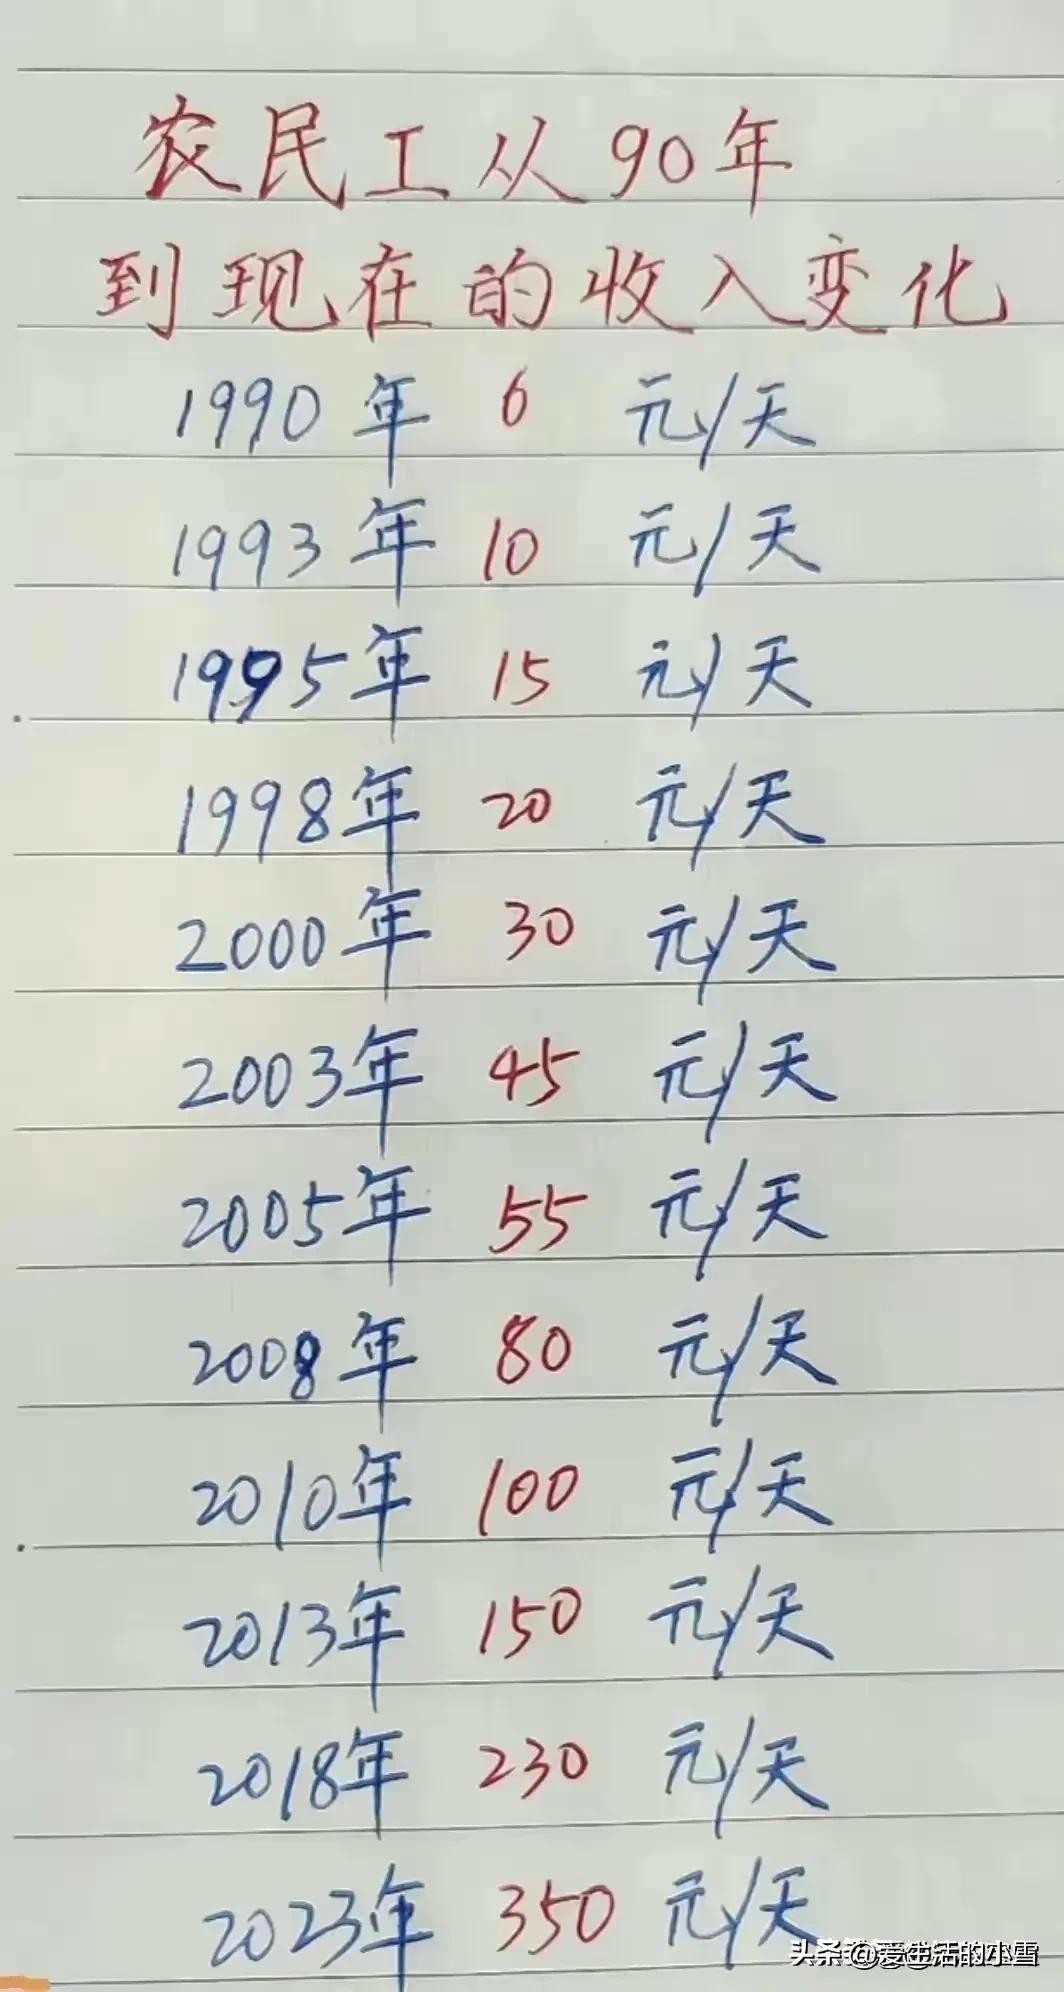 农民工从90年
到现在的收入变化
1990年 6 元/天
1993年 10 元/天
1995年 15 元/天
1998年 20 元/天
2000年 30 元/天
2003年 45 元/天
2005年 55 元/天
2008年 80 元/天
2010年 100 元/天
2013年 150 元/天
2018年 230 元/天
2023年 350 元/天
头条@爱生活的小雪